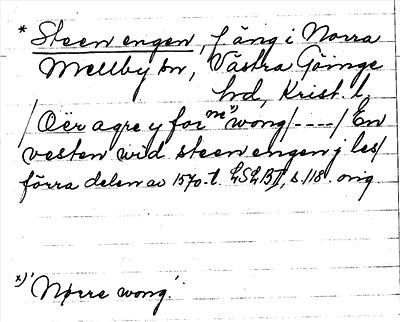 * Steen engen, f äng i Norra
Mellby sn, Västra Göinge
hd, Krist. l.
/Öër agre y for ne x) wong/----/En
vesten wid steen engen j les/
förra delen av 1570-t. LSLB II, s. 118. orig
x) 'Nørre wong'.